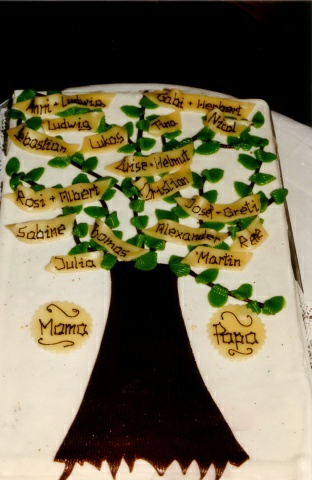 Anni + Ludwig
Gabi + Herbert
Ludwig
Tina
Nicol
Sebastian
Lukas
Helmut
Christian
Rosi + Albert
Josef + Greti
Sabine
Thomas
Alexander
René
Julia
Martin
Mama
Papa